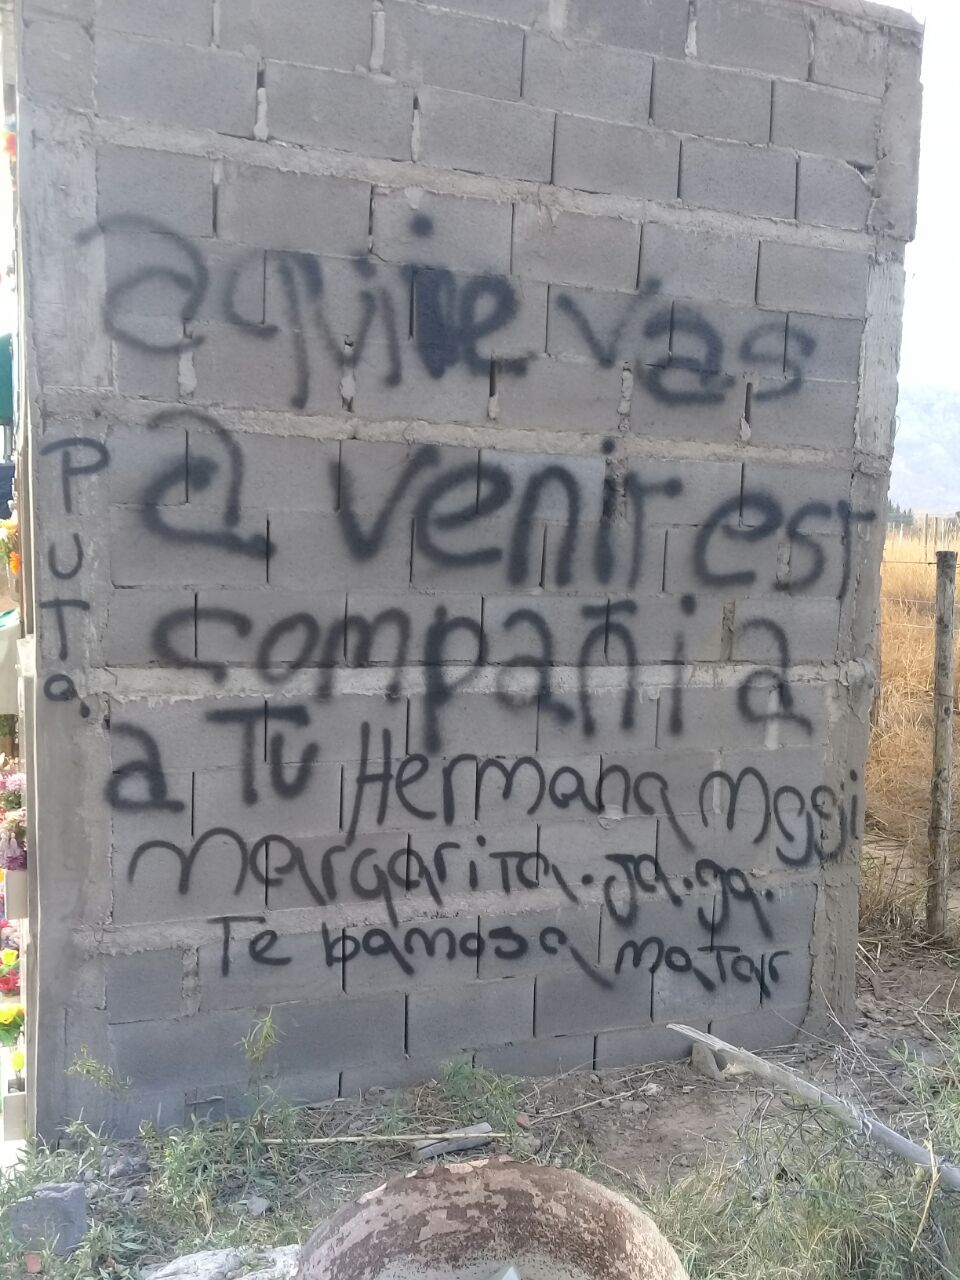 aquie vas
a venir est
compañia
a Tu Hermana Megji
Margarita. Ja. Ja.
Te bamos a matar
PUTa.